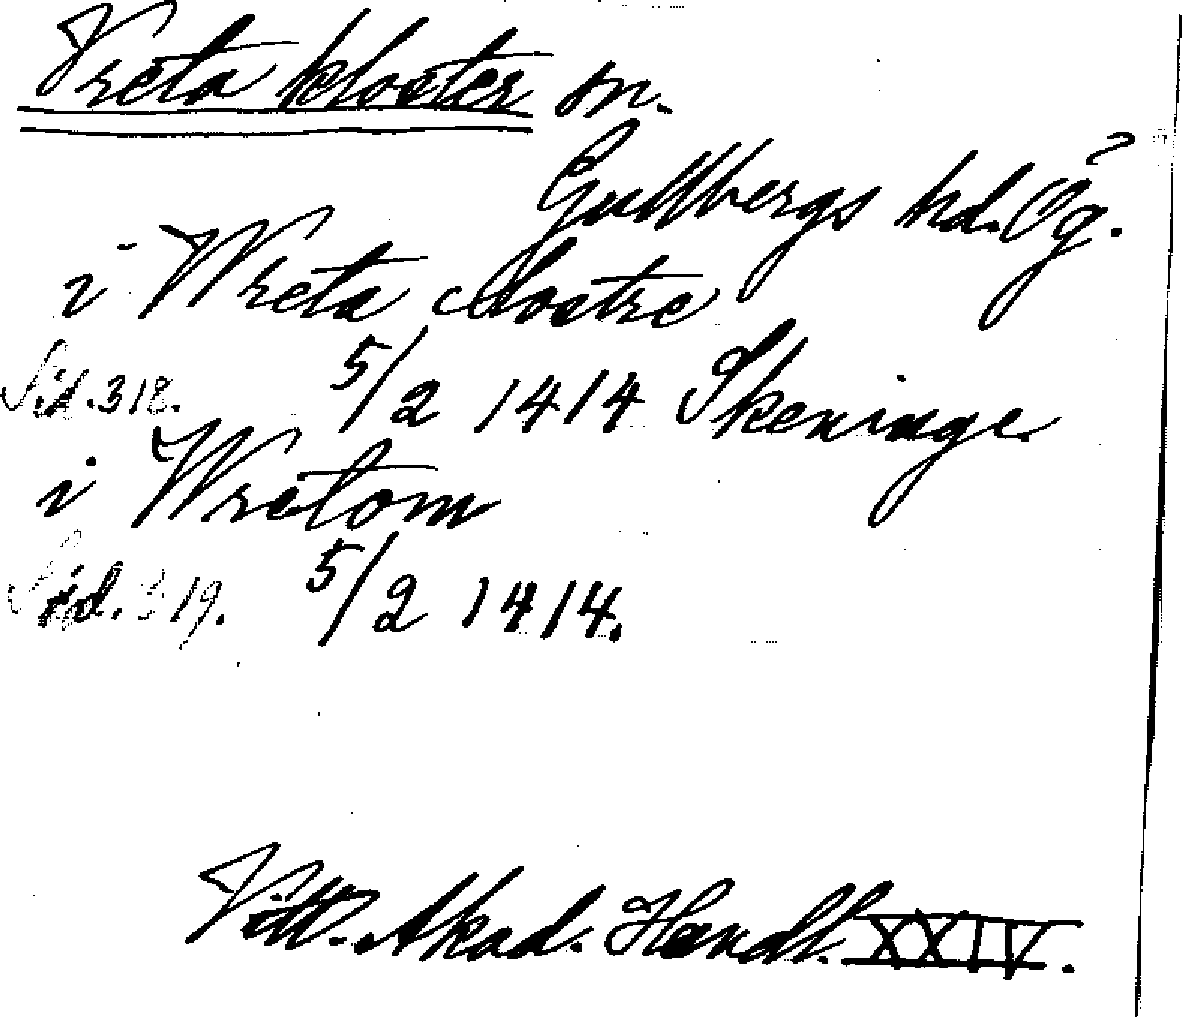 Vreta kloster sn.
Gullbergs hd. Ög.
i Wreta clostre
Sid. 318. 5/2 1414 Skeninge
i Wretom
Sid. 319. 5/2 1414.
Vitt. Akad. Handl. XXIV.